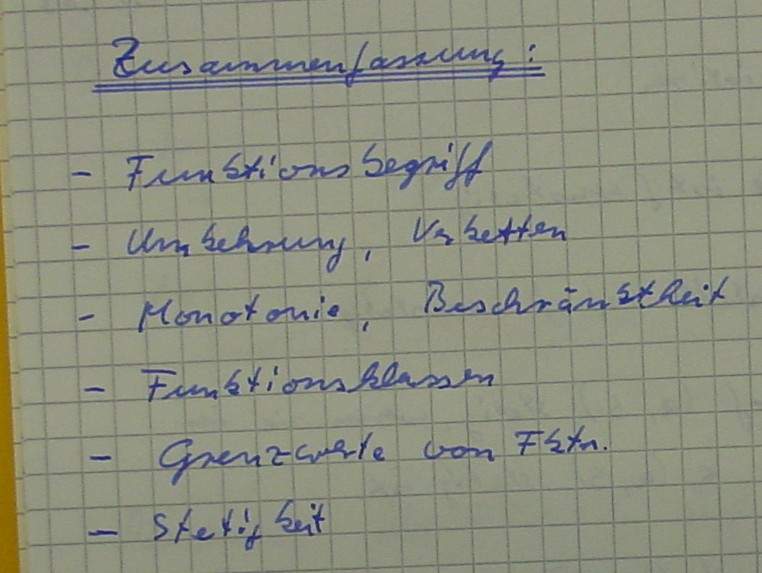 Zusammenfassung:
- Funktionsbegriff
- Umkehrung, Verketten
- Monotonie, Beschränktheit
- Funktionsklassen
- Grenzwerte von Fktn.
- Stetigkeit